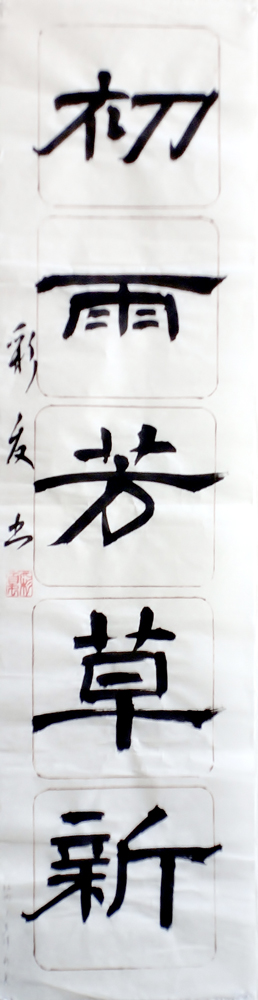 初雨芳草新
彩友书